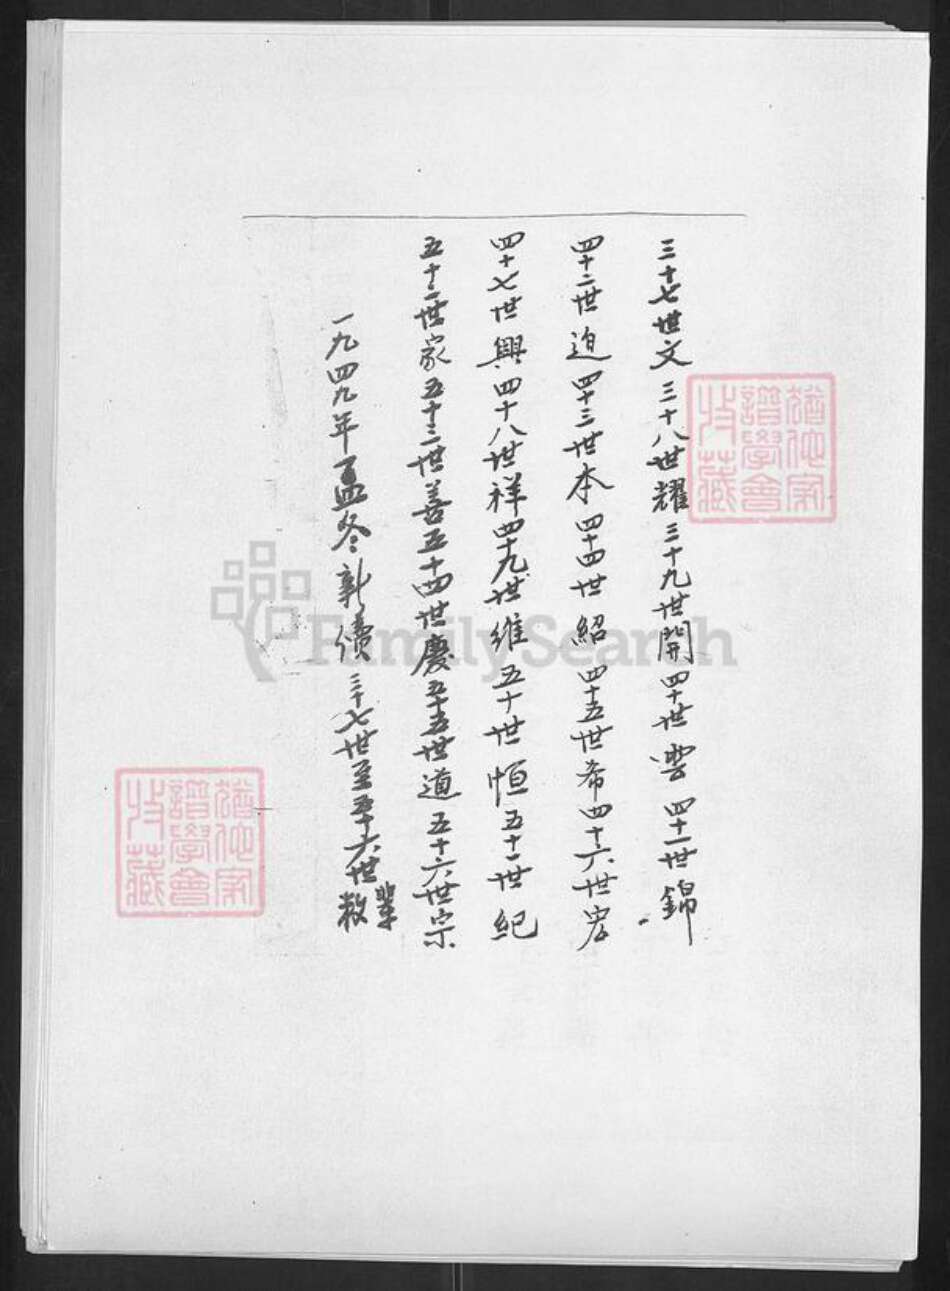 三十七世文三十八世耀三十九世開四十世雲四十一世錦
四十二世迫四十三世本四十四世紹四十五世希四十六世宏
四十七世興四十八世祥四十九世維五十世恒五十一世紀
五十二世家五十三世善五十四世慶五十五世道五十六世宗
一九四九年孟冬新續三十七世至五十六世輩敘
猶他家
譜學會
收藏
猶他家
譜學會
收藏
FamilySearch